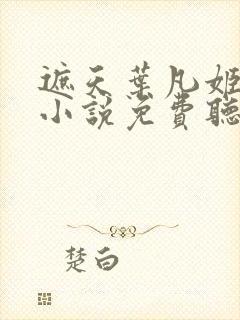 遮天葉凡姬
小說免費聽
楚白